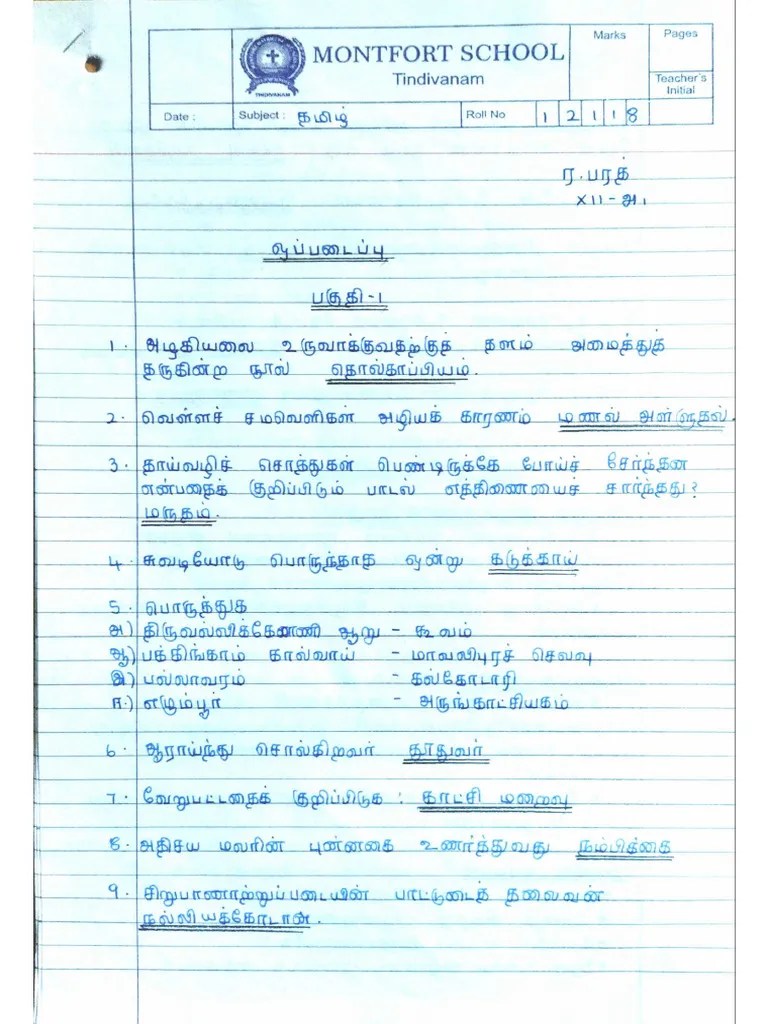 MONTFORT SCHOOL
Tindivanam
Marks
Pages
Teacher's
Initial
Date :
Subject : தமிழ்
Roll No
1 2 1 1 8
TINDIVANAM
ர.பரத்
XII-அ.
ஒப்படைப்பு
பகுதி-1
1. அழகியலை உருவாக்குவதற்குத் தளம் அமைத்துத்
தருகின்ற நூல் தொல்காப்பியம்.
2. வெள்ளச் சமவெளிகள் அழியக் காரணம் மணல் அள்ளுதல்.
3. தாய்வழிச் சொத்துகள் பெண்டிருக்கே போய்ச் சேர்ந்தன
என்பதைக் குறிப்பிடும் பாடல் எத்திணையைச் சார்ந்தது?
மருதம்.
4. சுவடியோடு பொருந்தாத ஒன்று கடுக்காய்
5. பொருத்துக
அ) திருவல்லிக்கேணி ஆறு - கூவம்
ஆ) பக்கிங்காம் கால்வாய் - மாவலிபுரச் செலவு
இ) பல்லாவரம் - கல்கோடாரி
ஈ.) எழும்பூர் - அருங்காட்சியகம்
6. ஆராய்ந்து சொல்கிறவர் தூதுவர்
7. வேறுபட்டதைக் குறிப்பிடுக : காட்சி மறைவு
8. அதிசய மலரின் புன்னகை உணர்த்துவது நம்பிக்கை
9. சிறுபாணாற்றுப்படையின் பாட்டுடைத் தலைவன்
நல்லியக்கோடான்.